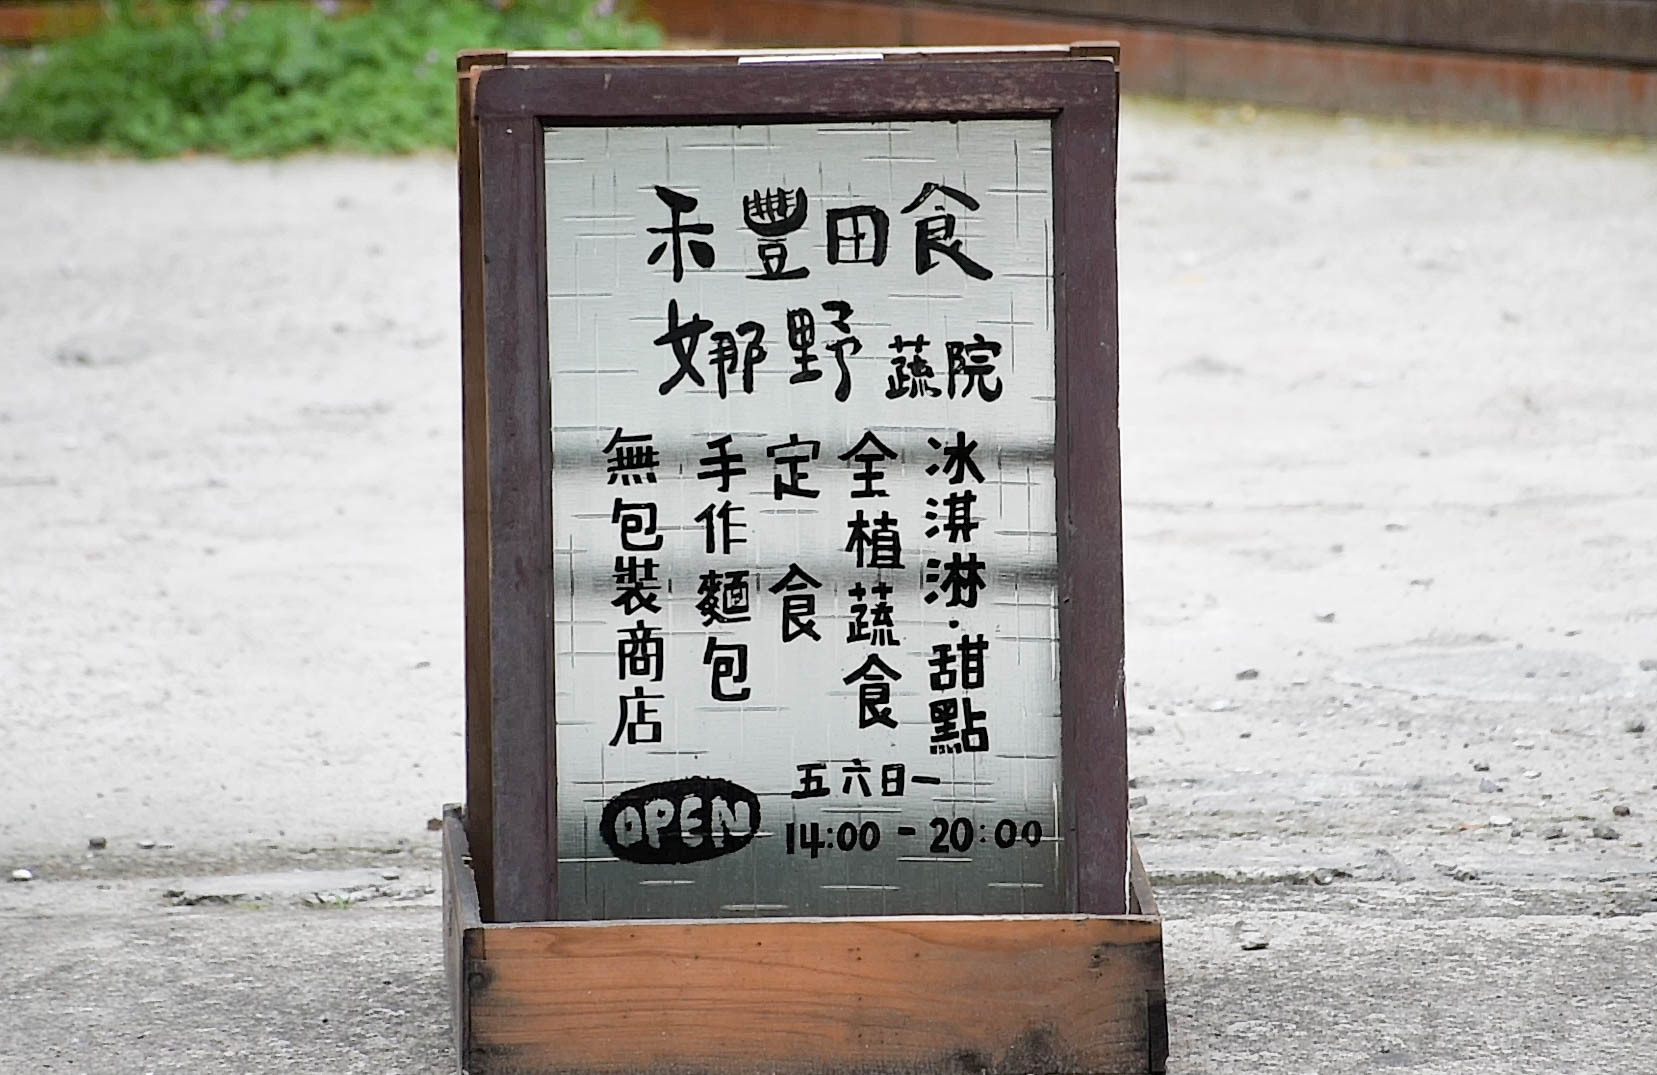 禾豐田食
娜野蔬院
冰淇淋·甜點
全植蔬食
定食
手作麵包
無包裝商店
OPEN
五六日一
14:00 - 20:00